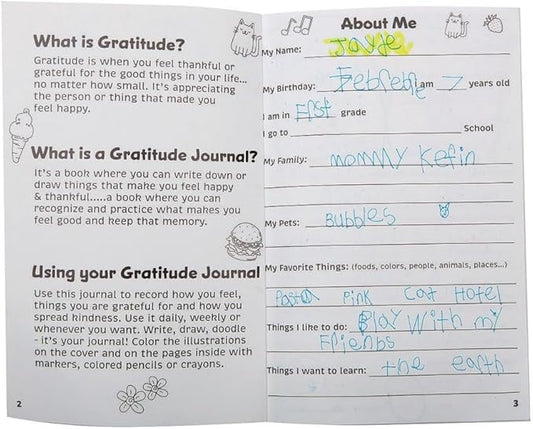 What is Gratitude?
Gratitude is when you feel thankful or
grateful for the good things in your life...
no matter how small. It's appreciating
the person or thing that made you
feel happy.
What is a Gratitude Journal?
It's a book where you can write down or
draw things that make you feel happy
& thankful.....a book where you can
recognize and practice what makes you
feel good and keep that memory.
Using your Gratitude Journal
Use this journal to record how you feel,
things you are grateful for and how you
spread kindness. Use it daily, weekly or
whenever you want. Write, draw, doodle
- it's your journal! Color the illustrations
on the cover and on the pages inside with
markers, colored pencils or crayons.
2
About Me
My Name:
My Birthday: Febrebre I am 7 years old
I am in Frst grade
I go to School
My Family: mommy Kefin
My Pets: Bubbles
My Favorite Things: (foods, colors, people, animals, places...)
Pasta Pink Cat Hotel
Things I like to do: Play With my
Friends
Things I want to learn: the earth
3